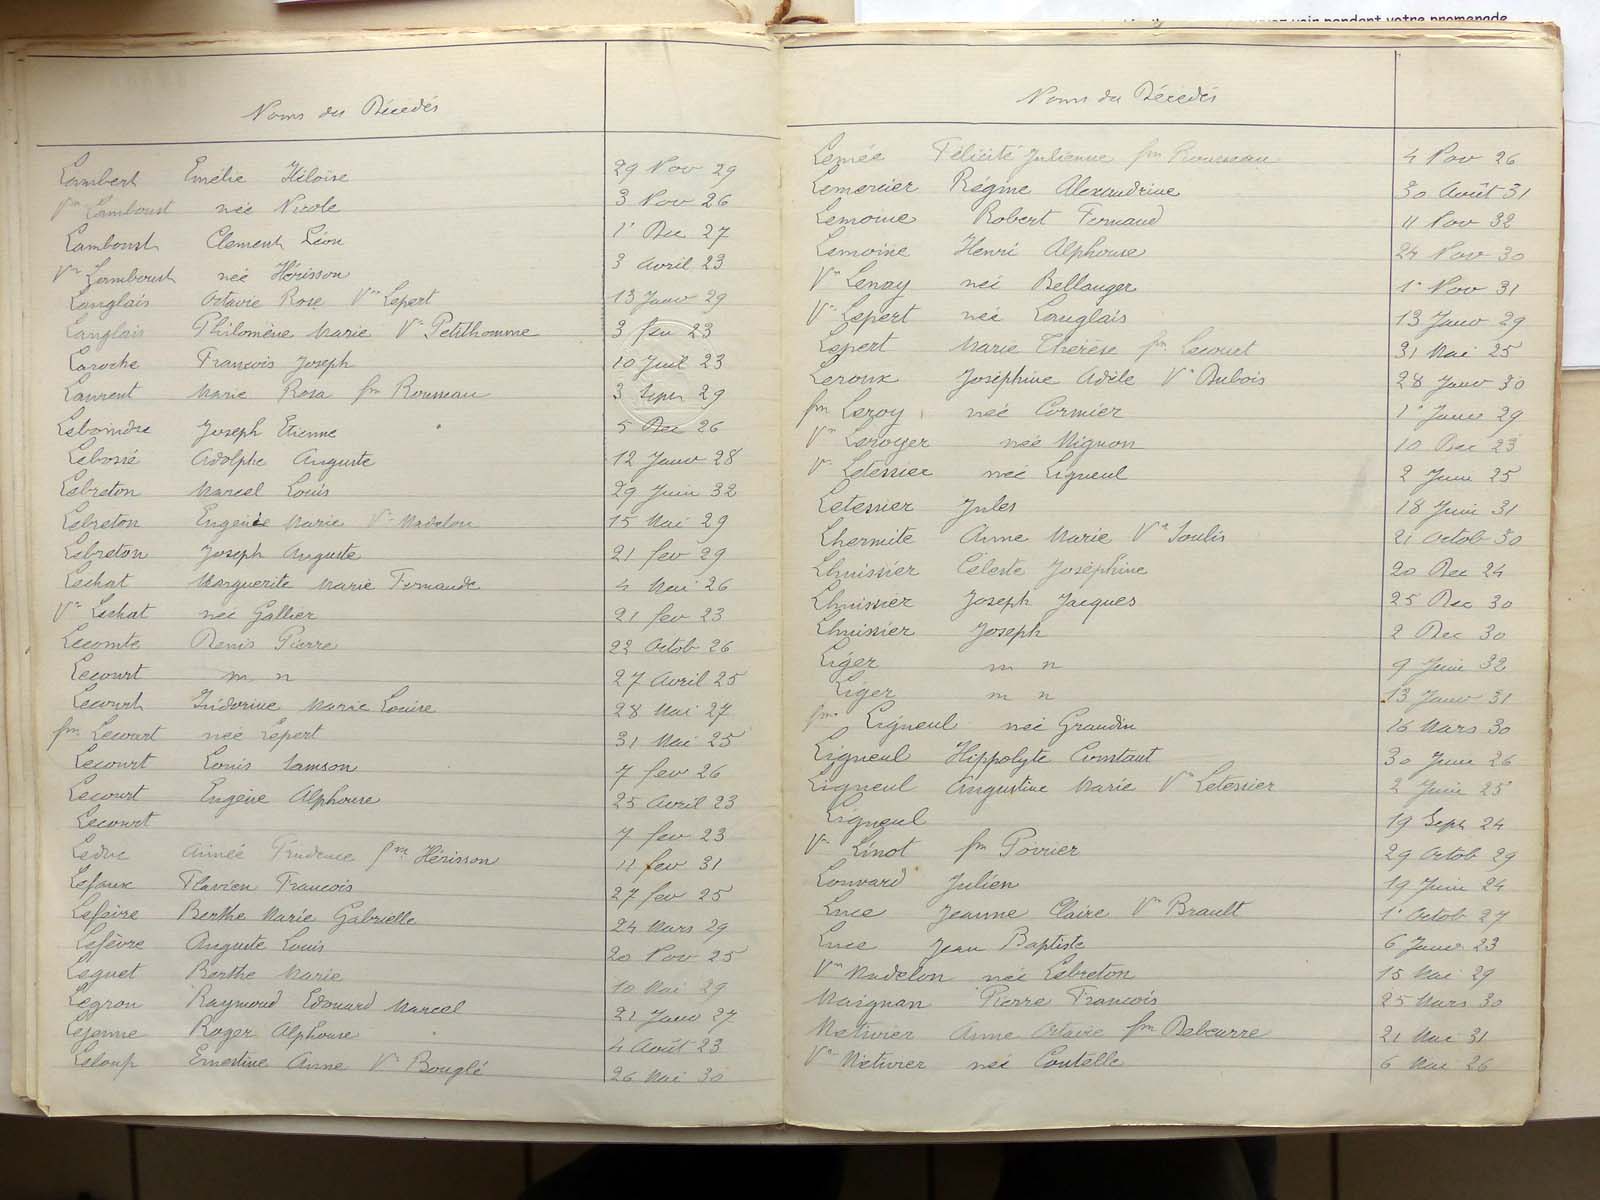 votre promenade
Noms des Décédés
Lambert Emélie Héloïse 29 Nov 29
Vve Lamboust née Nicole 3 Nov 26
Lamboust Clement Léon 1r Dec 27
Vve Lamboust née Hérisson 3 Avril 23
Langlais Octavie Rose Vve Lepert 13 Janv 29
Langlais Philomène Marie Ve Petithomme 3 fev 23
Laroche François Joseph 10 Juil 23
Laurent Marie Rosa fm Rousseau 3 Sept 29
Leboindre Joseph Etienne 5 Dec 26
Lebossé Adolphe Auguste 12 Janv 28
Lebreton Marcel Louis 29 Juin 32
Lebreton Eugénie Marie Ve Madelon 15 Mai 29
Lebreton Joseph Auguste 21 fev 29
Lechat Marguerite Marie Fernande 4 Mai 26
Ve Lechat née Gallier 21 fev 23
Lecomte Denis Pierre 22 Octob 26
Lecourt m n 27 Avril 25
Lecourt Isidorine Marie Louise 28 Mai 27
fm Lecourt née Lepert 31 Mai 25
Lecourt Louis Samson 7 fev 26
Lecourt Eugène Alphonse 25 Avril 23
Lecourt 7 fev 23
Leduc Aimée Prudence fme Hérisson 11 fev 31
Lefaux Flavien François 27 fev 25
Lefèvre Berthe Marie Gabrielle 24 Mars 29
Lefèvre Auguste Louis 20 Nov 25
Leguet Berthe Marie 10 Mai 29
Legron Raymond Edouard Marcel 21 Janv 27
Lejenne Roger Alphonse 4 Août 23
Leloup Ernestine Anne Ve Bouglé 26 Mai 30
Noms des Décédés
Lemée Félicité Julienne fm Rousseau 4 Nov 26
Lemercier Régine Alexandrine 30 Août 31
Lemoine Robert Fernand 11 Nov 32
Lemoine Henri Alphonse 24 Nov 30
Ve Lenay née Bellanger 1r Nov 31
Ve Lepert née Langlais 13 Janv 29
Lepert Marie Thérèse fm Lecourt 31 Mai 25
Leroux Joséphine Adèle Ve Dubois 28 Janv 30
fm Leroy née Cormier 1r Janv 29
Ve Leroyer née Mignon 10 Dec 23
Ve Letessier née Ligneul 2 Juin 25
Letessier Jules 18 Juin 31
Lhermite Anne Marie Ve Soulis 21 Octob 30
Lhuissier Céleste Joséphine 20 Dec 24
Lhuissier Joseph Jacques 25 Dec 30
Lhuissier Joseph 2 Dec 30
Liger m n 9 Juin 32
Liger m n 13 Janv 31
fme Ligneul née Graudin 16 Mars 30
Ligneul Hippolyte Constant 30 Juin 26
Ligneul Augustine Marie Ve Letessier 2 Juin 25
Ligneul 19 Sept 24
Ve Linot fm Poirier 29 Octob 29
Louvard Julien 19 Juin 24
Luce Jeanne Claire Ve Brault 1r Octob 27
Luce Jean Baptiste 6 Janv 23
Ve Madelon née Lebreton 15 Mai 29
Maignan Pierre François 25 Mars 30
Metivier Anne Octavie fm Debeurre 21 Mai 31
Ve Metivier née Coutelle 6 Mai 26